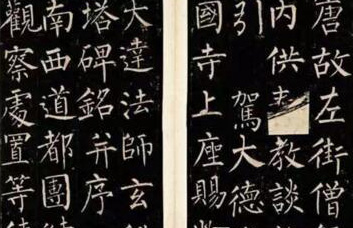 唐故左街僧
内供教談
引駕大德
國寺上座賜
大達法師玄
塔碑銘并序
南西道都團
觀察處置等